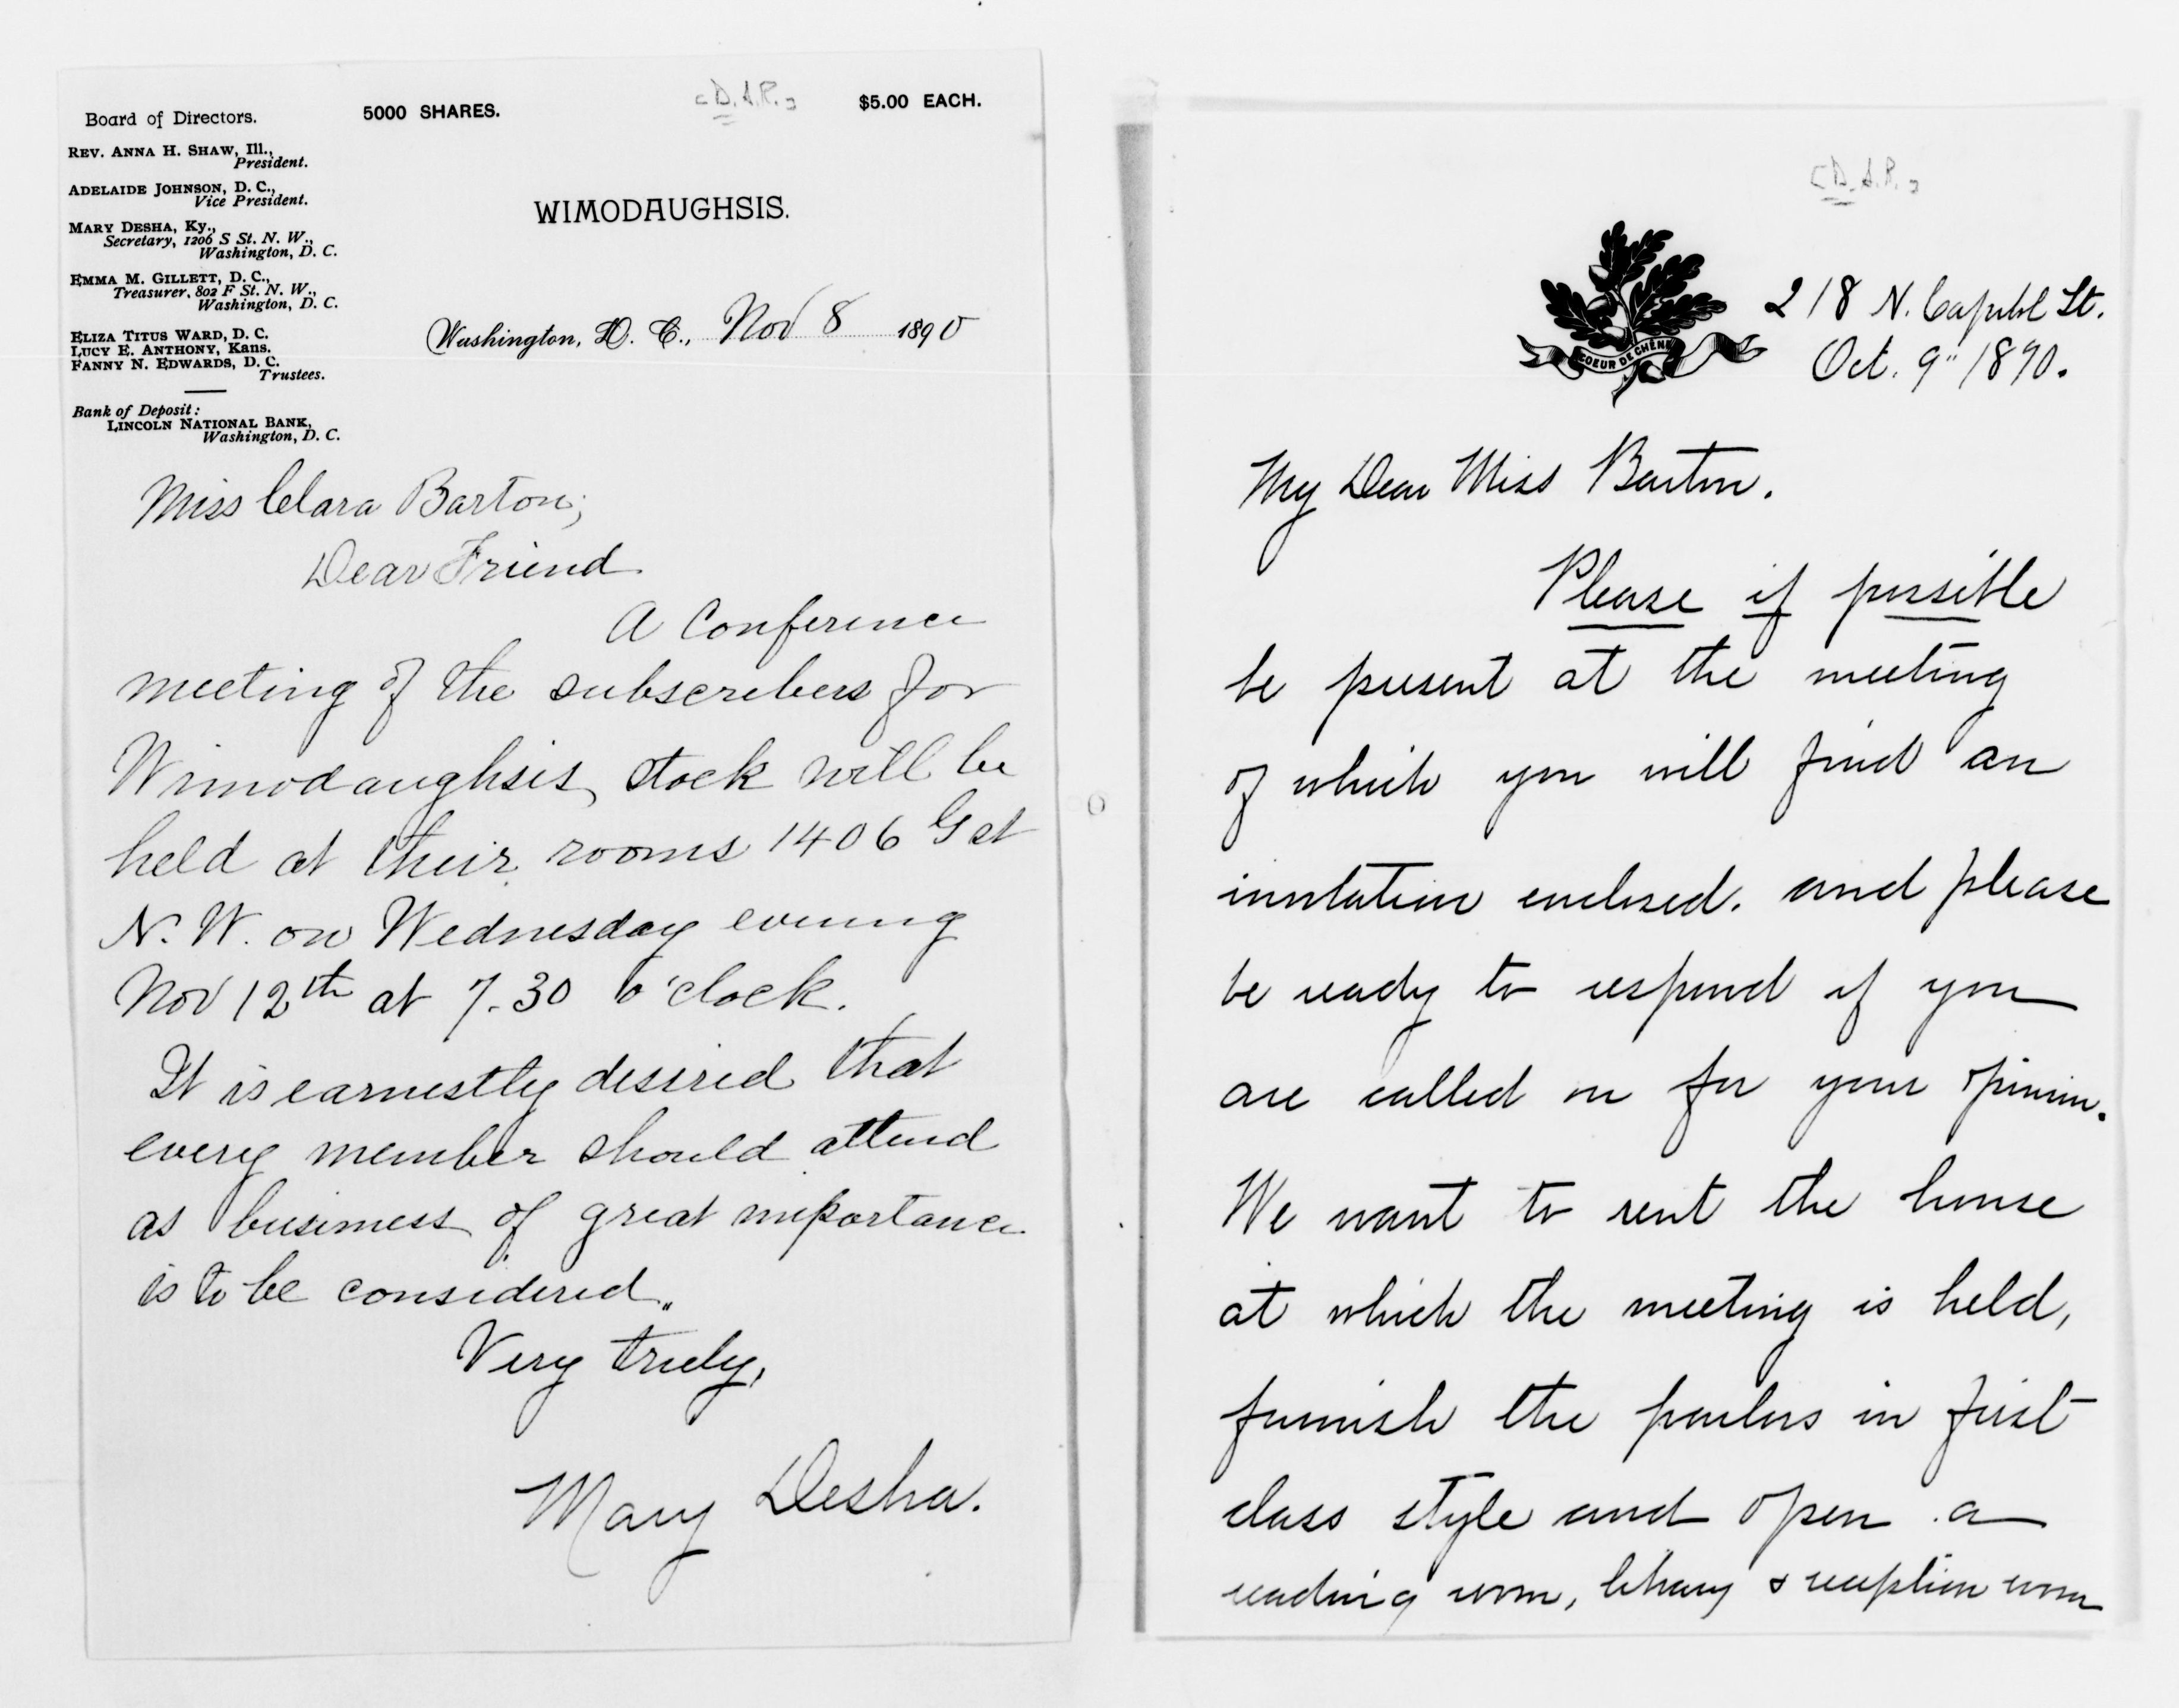 Board of Directors.
5000 SHARES.
[D.A.R.]
$5.00 EACH.
REV. ANNA H. SHAW, Ill.,
President.
ADELAIDE JOHNSON, D. C.,
Vice President.
MARY DESHA, Ky.,
Secretary, 1206 S St. N. W.,
Washington, D. C.
EMMA M. GILLETT, D. C.,
Treasurer, 802 F St. N. W.,
Washington, D. C.
ELIZA TITUS WARD, D. C.
LUCY E. ANTHONY, Kans.
FANNY N. EDWARDS, D. C.
Trustees.
Bank of Deposit:
LINCOLN NATIONAL BANK,
Washington, D. C.
WIMODAUGHSIS.
Washington, D. C., Nov 8 1890
Miss Clara Barton;
Dear Friend
A Conference
meeting of the subscribers for
Wimodaughsis stock will be
held at their rooms 1406 G st
N. W. on Wednesday evening
Nov 12th at 7.30 o'clock.
It is earnestly desired that
every member should attend
as business of great importance
is to be considered.
Very truly,
Mary Desha.
[D.A.R.]
COEUR DE CHÊNE
218 N. Capitol St.
Oct. 9" 1890.
My Dear Miss Barton.
Please if possible
be present at the meeting
of which you will find an
invitation enclosed. and please
be ready to respond if you
are called on for your opinion.
We want to rent the house
at which the meeting is held,
furnish the parlors in first
class style and open a
reading room, library & reception room